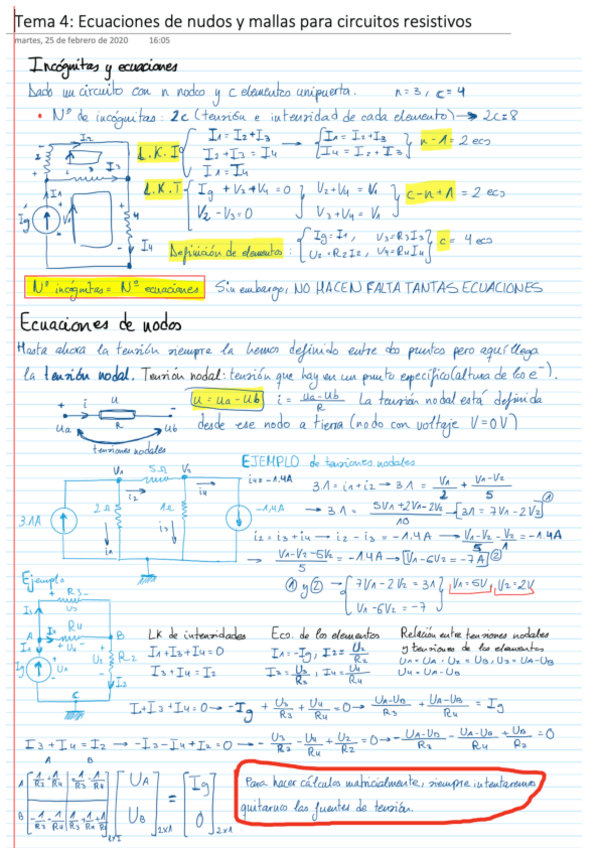 Tema 4: Ecuaciones de nudos y mallas para circuitos resistivos
martes, 25 de febrero de 2020 16:05
Incógnitas y ecuaciones
Dado un circuito con n nodos y c elementos unipuerta. n=3, c=4
• Nº de incógnitas: 2c (tensión e intensidad de cada elemento) → 2c=8
L.K.I { I1=I2+I3 → { I1=I2+I3 } n-1=2 ecs
I2+I3=I4 I4=I2+I3
I1=I4
L.K.T { Ig+V3+V4=0 } V2+V4=V1 } c-n+1=2 ecs
V2-V3=0 V3+V4=V1
Definición de elementos: { Ig=I1, V3=R3I3 } c=4 ecs
U2=R2I2, V4=R4I4
Nº incógnitas = Nº ecuaciones Sin embargo, NO HACEN FALTA TANTAS ECUACIONES
Ecuaciones de nodos
Hasta ahora la tensión siempre la hemos definido entre dos puntos pero aquí llega
la tensión nodal. Tensión nodal: tensión que hay en un punto específico (altura de los e⁻).
u = ua - ub i = ua-ub / R La tensión nodal está definida
desde ese nodo a tierra (nodo con voltaje V=0V)
+ i u -
ua R ub
tensiones nodales
EJEMPLO de tensiones nodales
V1 5Ω V2 i4=-1.4A
3.1A 2Ω 1Ω -1.4A
i1 i2 i3 i4
3.1=i1+i2 → 3.1 = V1/2 + V1-V2/5
→ 3.1 = 5V1+2V1-2V2/10 → [31=7V1-2V2] ①
i2=i3+i4 → i2-i3=-1.4A → V1-V2/5 - V2/1 = -1.4A
→ V1-V2-5V2/5 = -1.4A → [V1-6V2=-7A] ②
① y ② → { 7V1-2V2=31 } V1=5V, V2=2V
V1-6V2=-7
Ejemplo
R3
U3
I3
R4
A + U4 - B
I1
Ig U1 U2 R2
I2
C
LK de intensidades
I1+I3+I4=0
I3+I4=I2
Ecs. de los elementos
I1=-Ig, I2=U2/R2
I3=U3/R3, I4=U4/R4
Relación entre tensiones nodales
y tensiones de los elementos
U1=UA, U2=UB, U3=UA-UB
U4=UA-UB
I1+I3+I4=0 → -Ig + U3/R3 + U4/R4 = 0 → UA-UB/R3 + UA-UB/R4 = Ig
I3+I4=I2 → -I3-I4+I2=0 → -U3/R3 - U4/R4 + U2/R2 = 0 → -UA-UB/R3 - UA-UB/R4 + UB/R2 = 0
A B
A [ 1/R3+1/R4 -1/R3-1/R4 ] [ UA ] = [ Ig ]
B [ -1/R3-1/R4 1/R3+1/R4+1/R2 ] [ UB ] 2x1 [ 0 ] 2x1
Para hacer cálculos matricialmente, siempre intentaremos
quitarnos las fuentes de tensión.